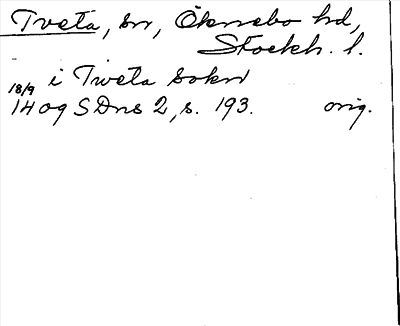 Tveta, sn, Öknebo hd,
Stockh. l.
18/9 i Tweta sokn
1409 SDns 2, s. 193. orig.